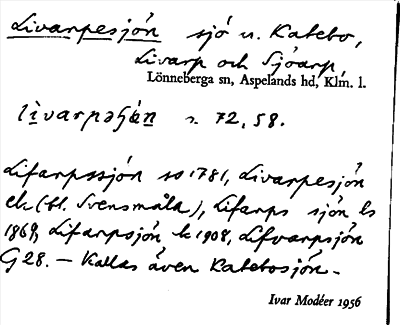 Livarpesjön sjö u. Katebo,
Livarp och Sjöarp,
Lönneberga sn, Aspelands hd, Klm. l.
72, 58.
Lifarpssjön so 1781, Livarpesjön
ek (bl. Svensmåla), Lifarps sjön ls
1869, Lifarpsjön k 1908, Lifvarpsjön
G 28. — Kallas även Katebosjön.
Ivar Modéer 1956